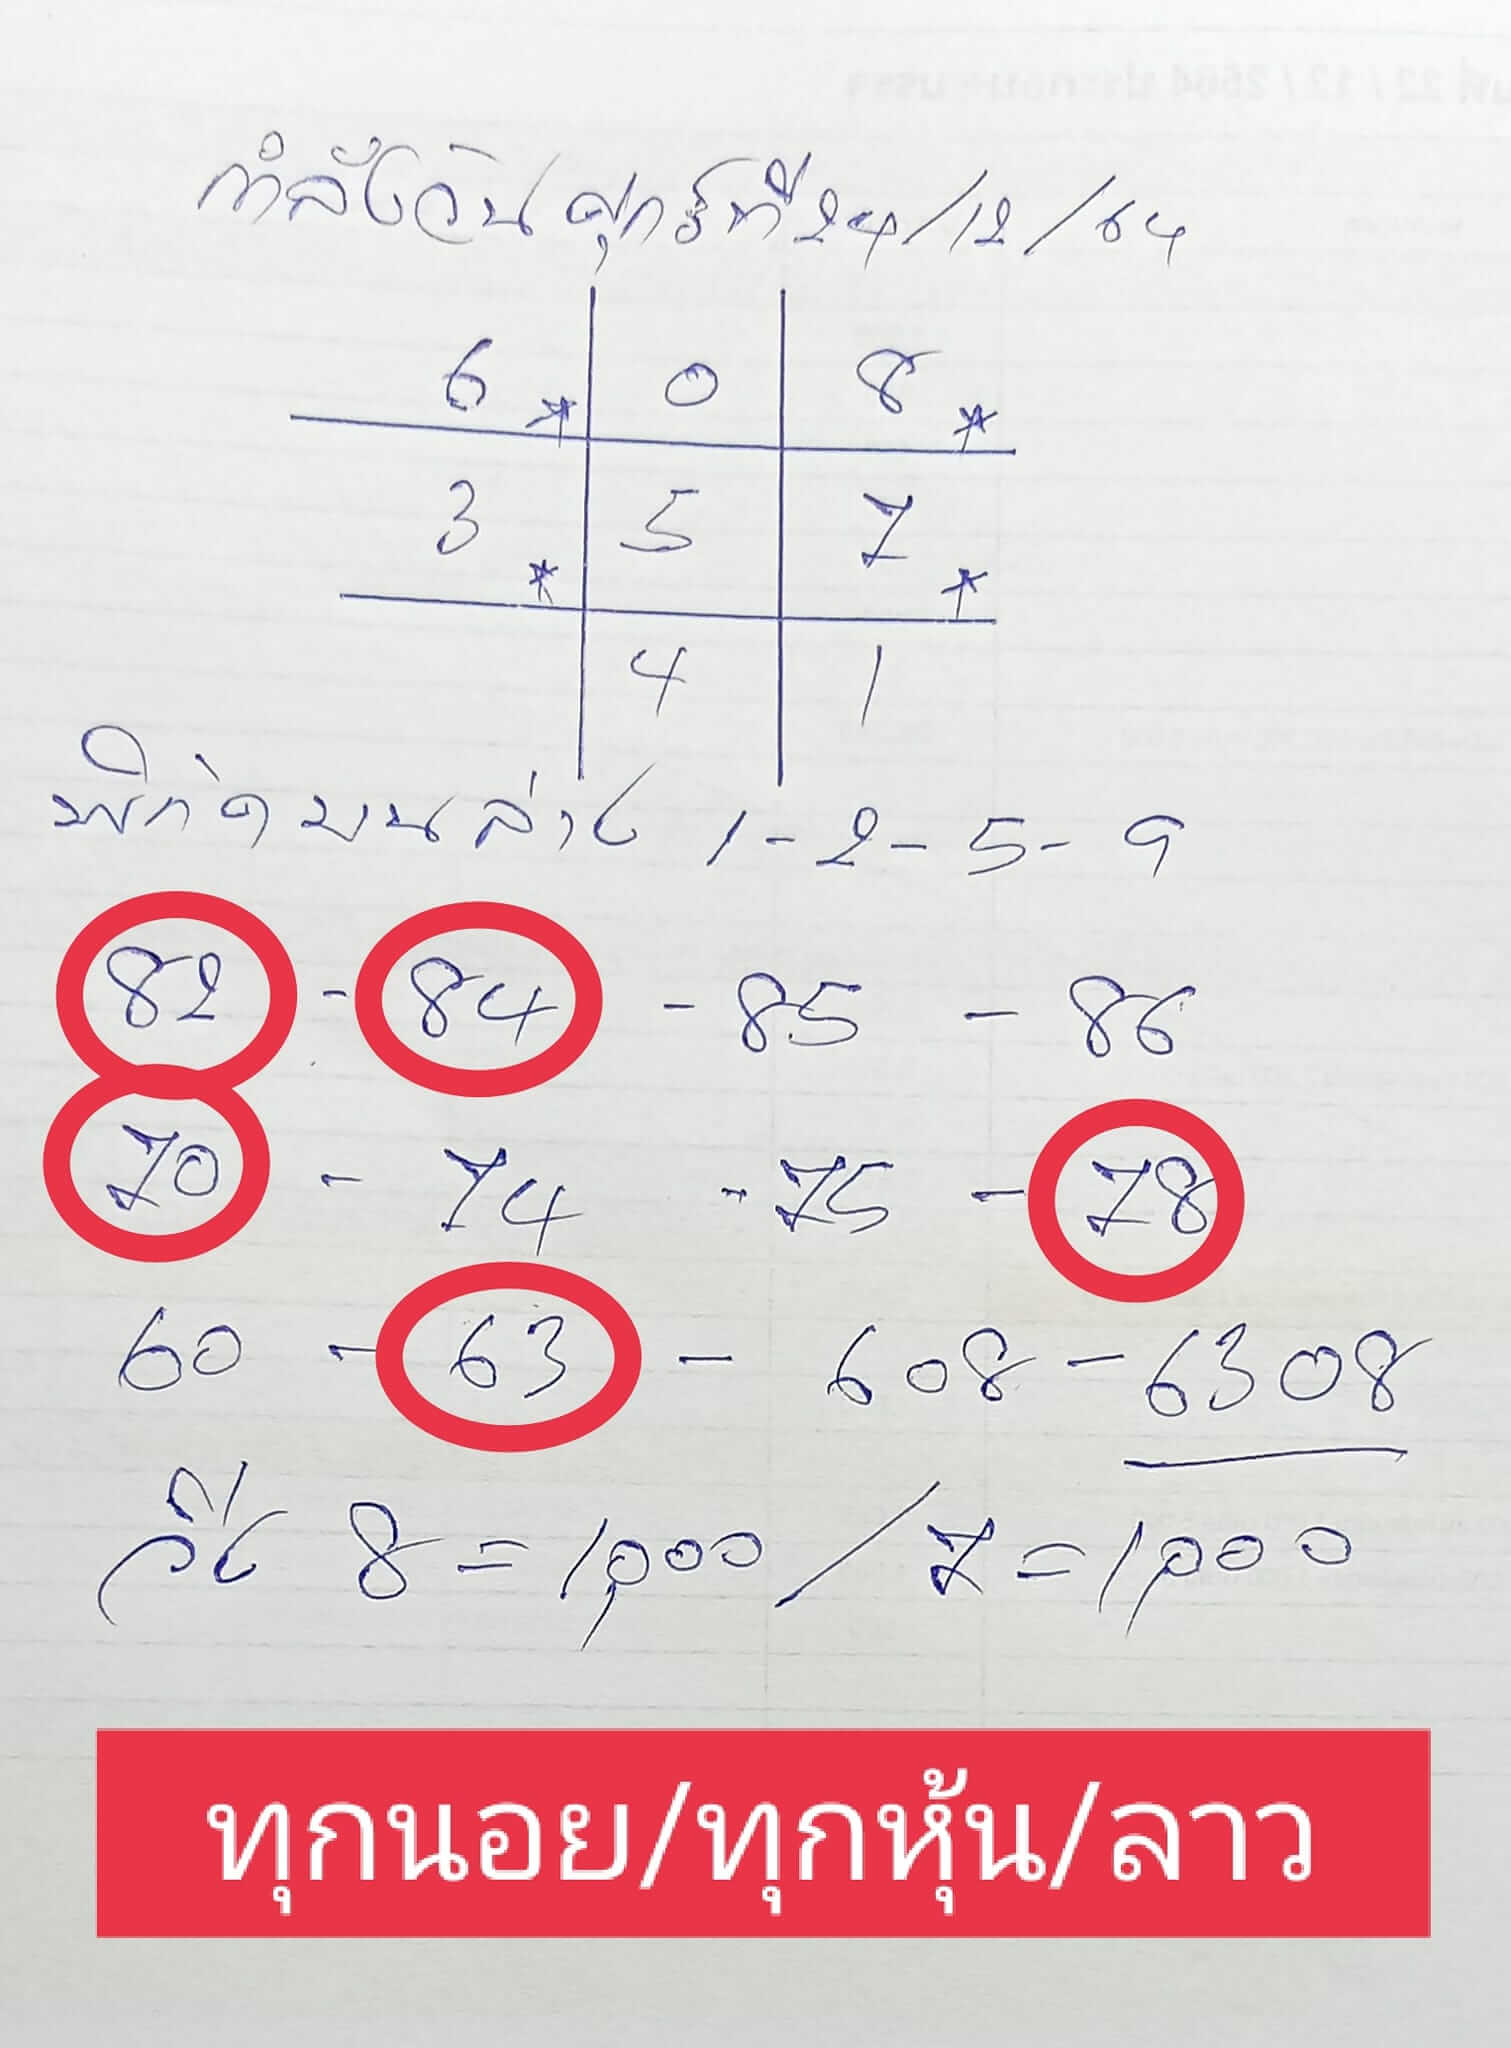 กำลังวันศุกร์ที่ 24/12/64
6 0 8
3 5 7
4 1
พิกัดบนล่าง 1-2-5-9
82 - 84 - 85 - 86
70 - 74 - 75 - 78
60 - 63 - 608 - 6308
วิ่ง 8 = 1,000 / 7 = 1,000
ทุกนอย/ทุกหุ้น/ลาว